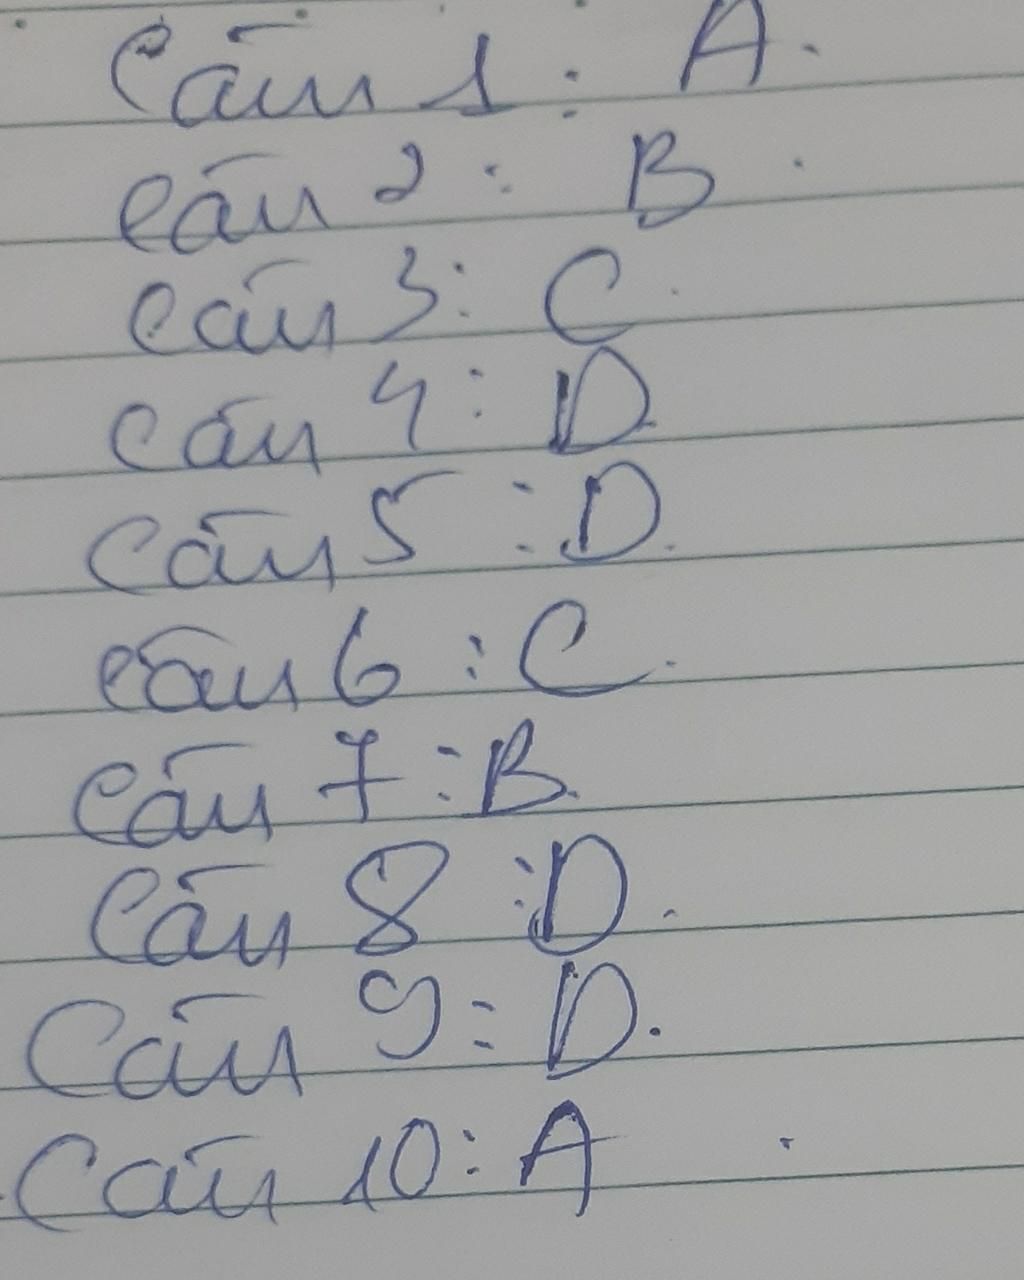 Câu 1 : A.
Câu 2 : B.
Câu 3 : C.
Câu 4 : D.
Câu 5 : D.
Câu 6 : C.
Câu 7 : B.
Câu 8 : D.
Câu 9 : D.
Câu 10 : A